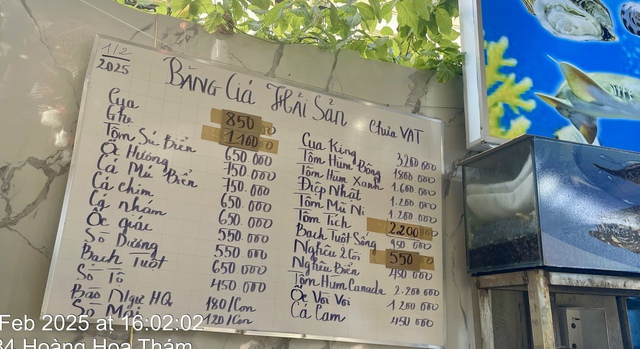 1/2
2025
BẢNG Giá Hải Sản
Chưa VAT
Cua 850
Ghẹ 1.100
Tôm Sú Biển 650 000
Ốc Hương 750 000
Cá Mú Biển 750.000
Cá chim 650 000
Cá nhám 650.000
Ốc giác 550.000
Sò Dương 550.000
Bạch Tuột 650 000
Sò Tô 450 000
Bào Ngư HQ 180/Con
Sò Mai 120/Con
Cua King 3.200 000
Tôm Hùm Bông 1800 000
Tôm Hùm Xanh 1.600 000
Điệp Nhật 1.200 000
Tôm Mũ Ni 1.200 000
Tôm Tích 2.200
Bạch Tuột Sống 950 000
Nghêu 2 Cồi 550
Nghêu Biển 450 000
Tôm Hùm Canada 2.200 000
Ốc Vòi Voi 1200 000
Cá Cam 450 000
Feb 2025 at 16:02:02
84 Hoàng Hoa Thám